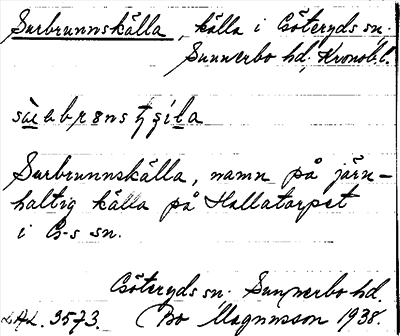 Surbrunnskälla, källa i Göteryds sn.
Sunnerbo hd, Kronob. l.
Surbrunnskälla, namn på järn-
haltig källa på Hallatorpet
i G-s sn.
Göteryds sn. Sunnerbo hd.
LAL. 3573. Bo Magnusson 1938.